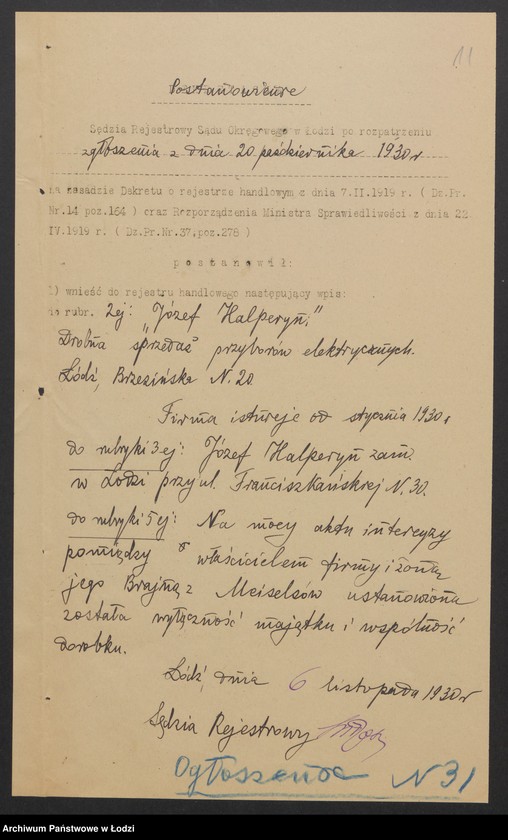 11
Postanowienie
Sędzia Rejestrowy Sądu Okręgowego w Łodzi po rozpatrzeniu
zgłoszenia z dnia 20 października 1930 r
na zasadzie Dekretu o rejestrze handlowym z dnia 7.II.1919 r. ( Dz.Pr.
Nr.14 poz.164 ) oraz Rozporządzenia Ministra Sprawiedliwości z dnia 22
IV.1919 r. ( Dz.Pr.Nr.37,poz.278 )
postanowił:
1) wnieść do rejestru handlowego następujący wpis:
do rubr. 2ej: "Józef Halperyn."
Drobna sprzedaż przyborów elektrycznych.
Łódź, Brzezińska N. 20
Firma istnieje od stycznia 1930 r
do rubryki 3ej: Józef Halperyn zam.
w Łodzi przy ul. Franciszkańskiej N. 30.
do rubryki 5ej: Na mocy aktu intercyzy
pomiędzy właścicielem firmy i żoną
jego Brajną z Meiselsów ustanowiona
została wyłączność majątku i wspólność
dorobku.
Łódź, dnia 6 listopada 1930 r
Sędzia Rejestrowy
Ogłoszenie N 31
Archiwum Państwowe w Łodzi